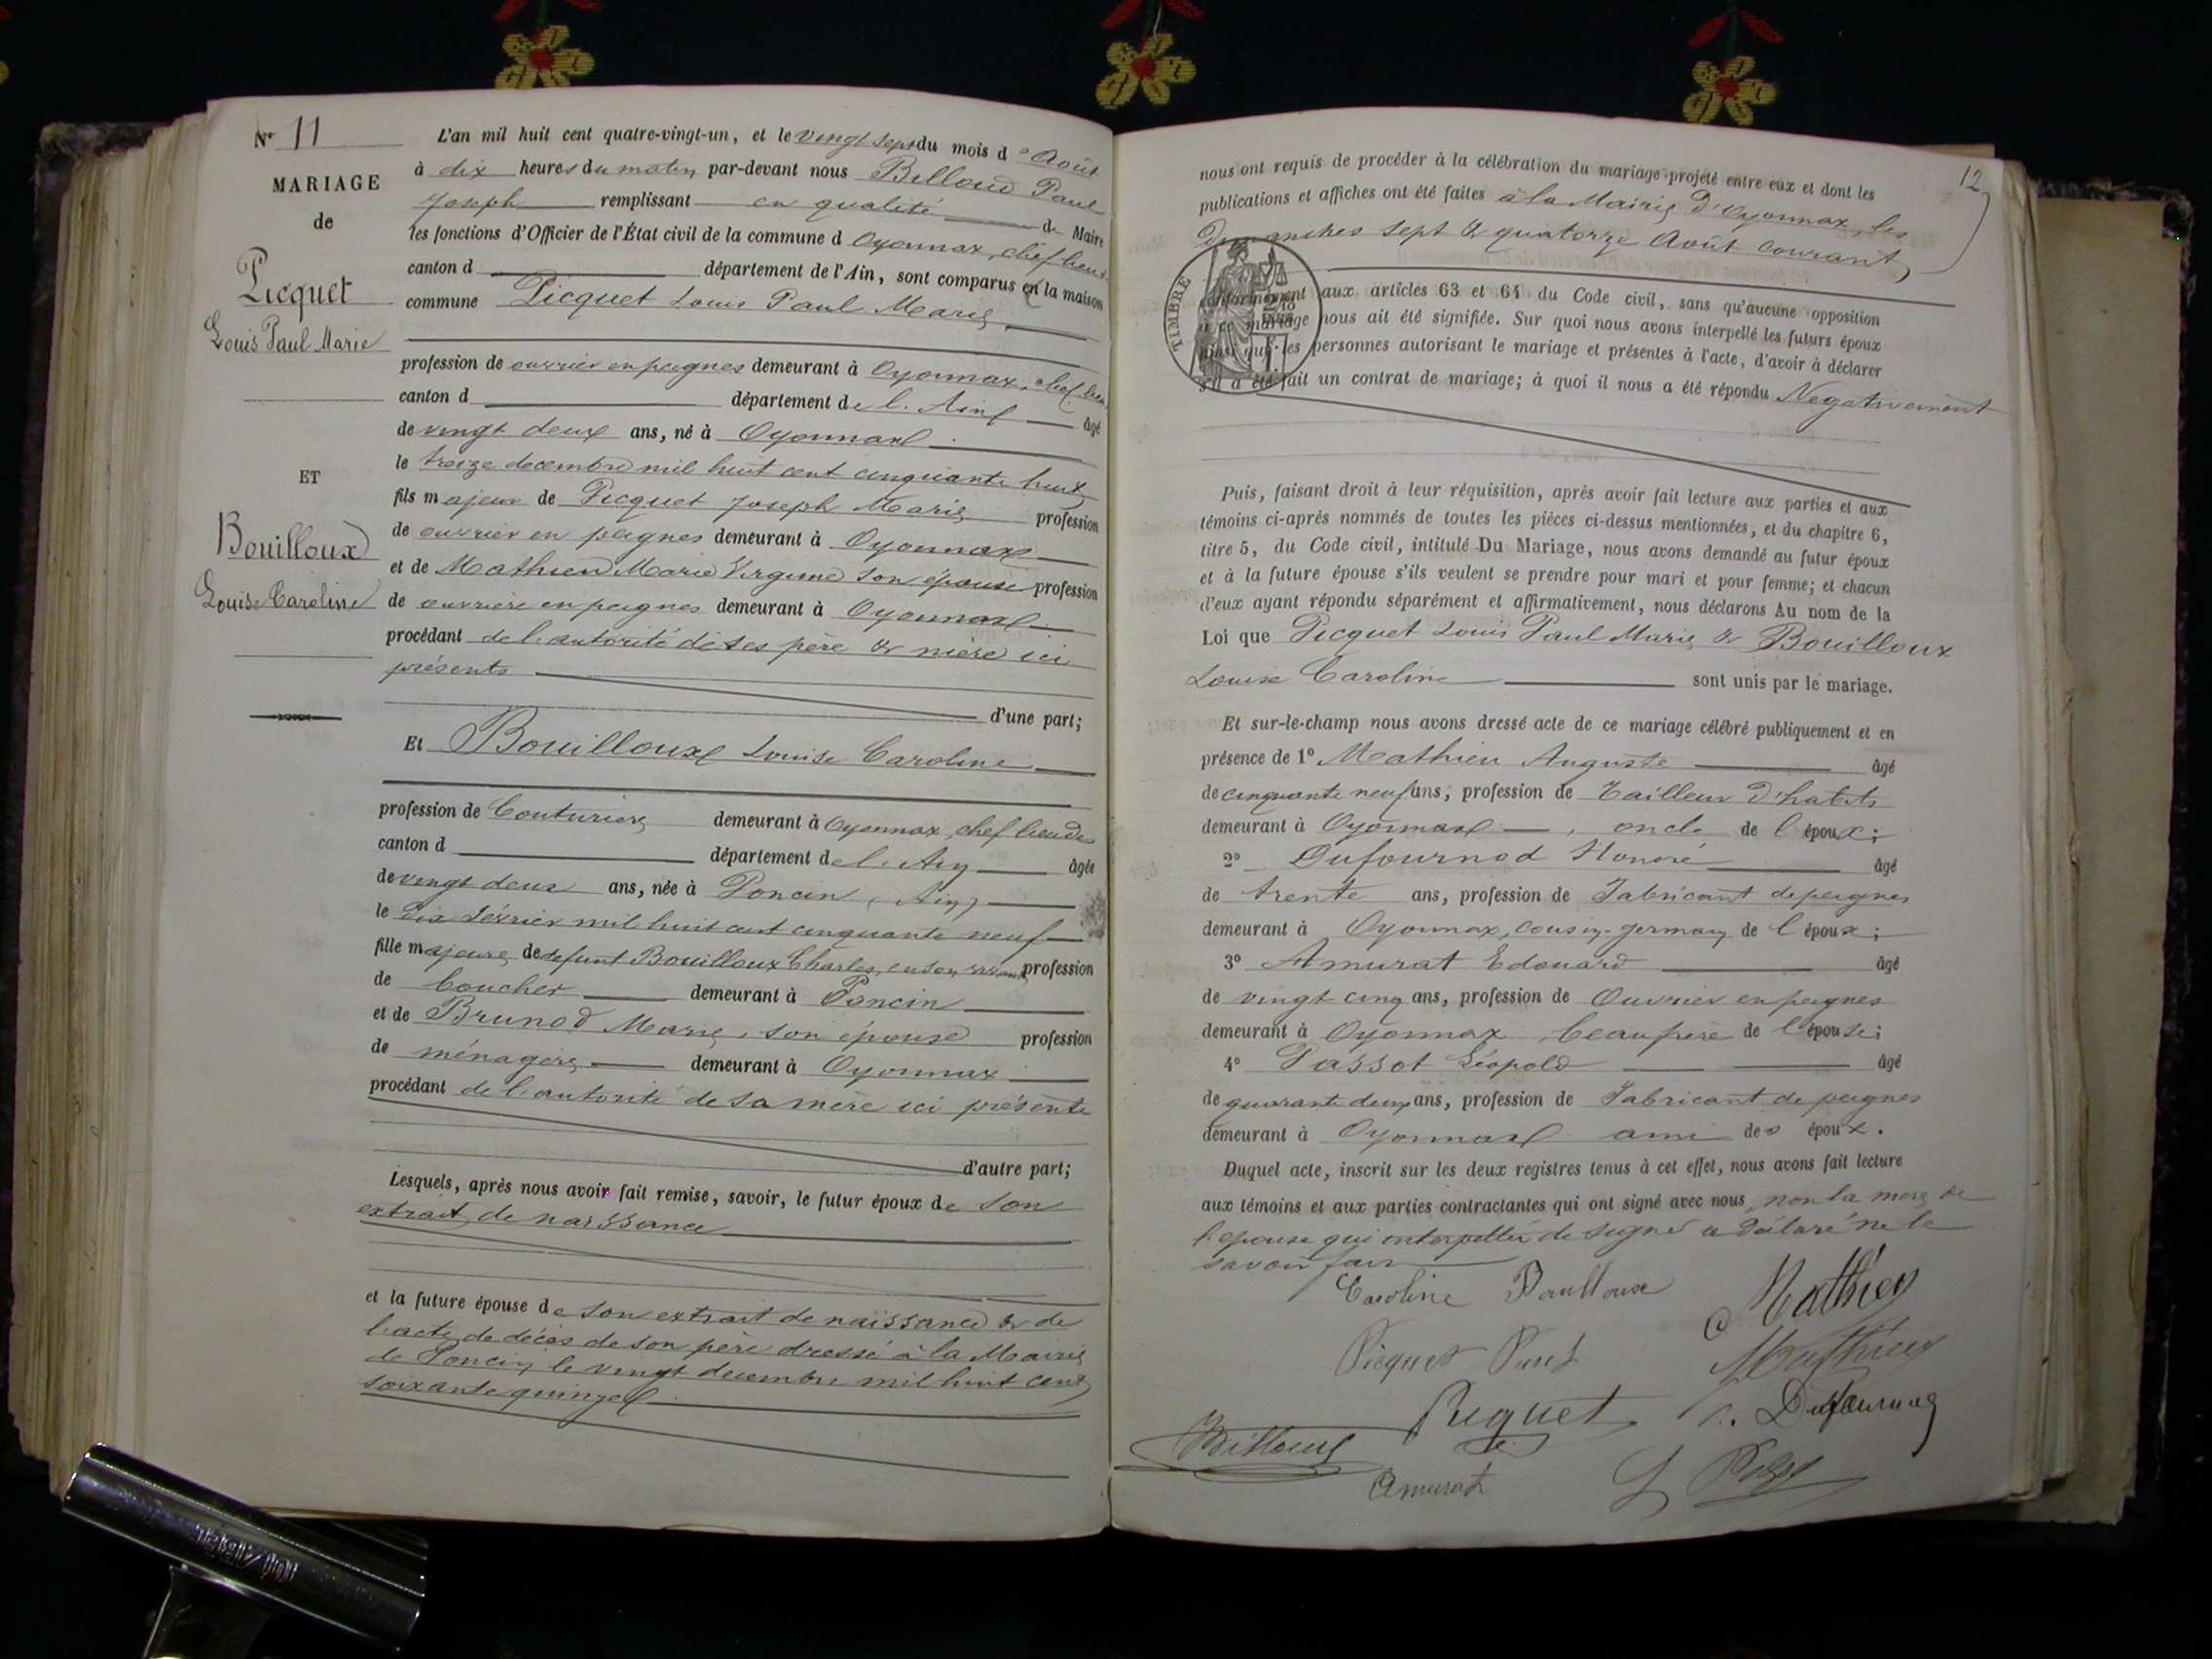 N° 11
MARIAGE
de
Picquet
Louis Paul Marie
ET
Bouilloux
Louise Caroline
L'an mil huit cent quatre-vingt-un, et le vingt sept du mois d'Août
à dix heures du matin par-devant nous Billoud Paul
Joseph remplissant en qualité de Maire
les fonctions d'Officier de l'État civil de la commune d Oyonnax, chef lieu de
canton d département de l'Ain, sont comparus en la maison
commune Picquet Louis Paul Marie,
profession de ouvrier en peignes demeurant à Oyonnax, chef lieu
canton d département de l'Ain âgé
de vingt deux ans, né à Oyonnax
le treize decembre mil huit cent cinquante huit
fils majeur de Picquet Joseph Marie profession
de ouvrier en peignes demeurant à Oyonnax
et de Mathieu Marie Virginie son épouse profession
de ouvrière en peignes demeurant à Oyonnax
procédant de l'autorité de ses père & mère ici
présents
d'une part;
Et Bouilloux Louise Caroline
profession de Couturière demeurant à Oyonnax, chef lieu de
canton d département de l'Ain âgée
de vingt deux ans, née à Poncin (Ain)
le dix février mil huit cent cinquante neuf
fille majeure de defunt Bouilloux Charles, en son vivant profession
de boucher demeurant à Poncin
et de Brunod Marie, son épouse profession
de ménagère demeurant à Oyonnax
procédant de l'autorité de sa mère ici présente
d'autre part;
Lesquels, après nous avoir fait remise, savoir, le futur époux de son
extrait de naissance
et la future épouse de son extrait de naissance & de
l'acte de décès de son père dressé à la Mairie
de Poncin le vingt decembre mil huit cent
soixante quinze
12
nous ont requis de procéder à la célébration du mariage projeté entre eux et dont les
publications et affiches ont été faites à la Mairie d'Oyonnax, les
Dimanches sept & quatorze Août courant,
TIMBRE
conformément aux articles 63 et 64 du Code civil, sans qu'aucune opposition
à ce mariage nous ait été signifiée. Sur quoi nous avons interpellé les futurs époux
ainsi que les personnes autorisant le mariage et présentes à l'acte, d'avoir à déclarer
s'il a été fait un contrat de mariage; à quoi il nous a été répondu Negativement
Puis, faisant droit à leur réquisition, après avoir fait lecture aux parties et aux
témoins ci-après nommés de toutes les pièces ci-dessus mentionnées, et du chapitre 6,
titre 5, du Code civil, intitulé Du Mariage, nous avons demandé au futur époux
et à la future épouse s'ils veulent se prendre pour mari et pour femme; et chacun
d'eux ayant répondu séparément et affirmativement, nous déclarons Au nom de la
Loi que Picquet Louis Paul Marie & Bouilloux
Louise Caroline sont unis par le mariage.
Et sur-le-champ nous avons dressé acte de ce mariage célébré publiquement et en
présence de 1° Mathieu Auguste âgé
de cinquante neuf ans, profession de Tailleur d'habits
demeurant à Oyonnax, oncle de l'époux;
2° Dufournod Honoré âgé
de trente ans, profession de Fabricant de peignes
demeurant à Oyonnax, cousin-germain de l'époux;
3° Amurat Edouard âgé
de vingt cinq ans, profession de Ouvrier en peignes
demeurant à Oyonnax, beau frère de l'épouse;
4° Passot Léopold âgé
de quarante deux ans, profession de Fabricant de peignes
demeurant à Oyonnax ami des époux.
Duquel acte, inscrit sur les deux registres tenus à cet effet, nous avons fait lecture
aux témoins et aux parties contractantes qui ont signé avec nous, non la mère de
l'épouse qui interpellée de signer a déclaré ne le
savoir faire
Caroline Bouilloux Mathieu
Picquet Paul Mathieu
Picquet Dufournod
Billoud
Amurat